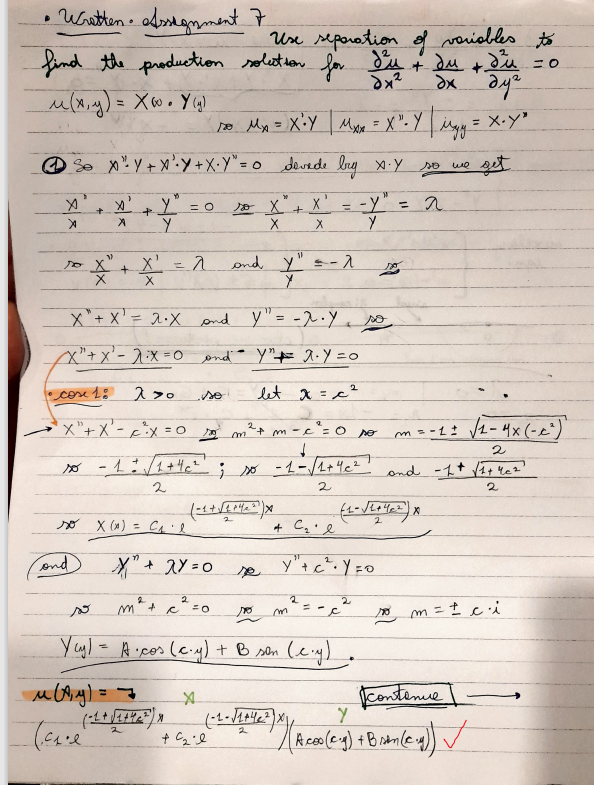 • Wretten. Assegnment 7
Use seperation of variables to
find the production solution for ∂²u/∂x² + ∂u/∂x + ∂²u/∂y² = 0
u(x,y) = X(x) • Y(y)
so uₓ = X'·Y | uₓₓ = X''·Y | u_yy = X·Y''
① So X''·Y + X'·Y + X·Y'' = 0 devede by X·Y so we get
X''/X + X'/X + Y''/Y = 0 so X''/X + X'/X = -Y''/Y = λ
so X''/X + X'/X = λ and Y''/Y = -λ so
X'' + X' = λ·X and Y'' = -λ·Y, so
X'' + X' - λ·X = 0 and Y'' + λ·Y = 0
• case 1: λ > 0 so let λ = c²
→ X'' + X' - c²·X = 0 so m² + m - c² = 0 so m = (-1 ± √(1-4×(-c²)))/2
so (-1 ± √(1+4c²))/2 ; so (-1 - √(1+4c²))/2 and (-1 + √(1+4c²))/2
so X(x) = C₁·e^(((-1+√(1+4c²))/2)x) + C₂·e^(((-1-√(1+4c²))/2)x)
and Y'' + λY = 0 so Y'' + c²·Y = 0
so m² + c² = 0 so m² = -c² so m = ± c·i
Y(y) = A·cos(c·y) + B sen(c·y).
u(x,y) = X Y contenue →
(C₁·e^(((-1+√(1+4c²))/2)x) + C₂·e^(((-1-√(1+4c²))/2)x))(A cos(c·y) + B sen(c·y)) ✓